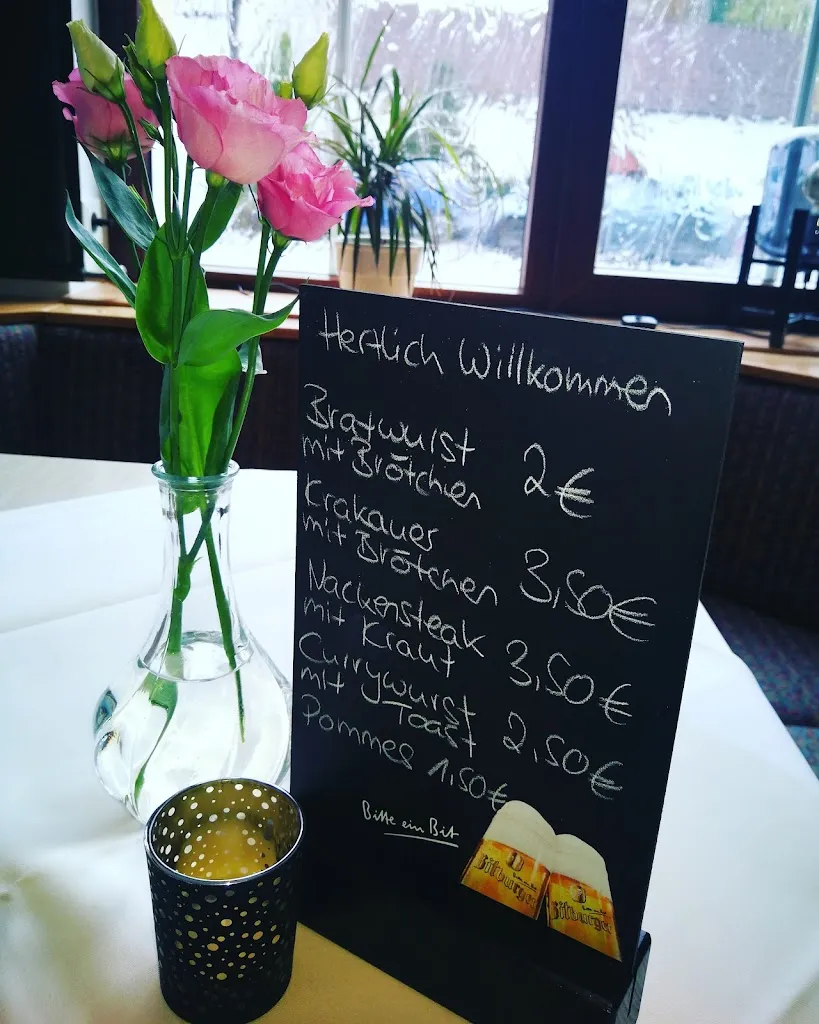 Herzlich Willkommen
Bratwurst
mit Brötchen 2€
Krakauer
mit Brötchen 3,50€
Nackensteak
mit Kraut 3,50€
Currywurst
mit Toast 2,50€
Pommes 1,50€
Bitte ein Bit
Bitburger
Bitburger